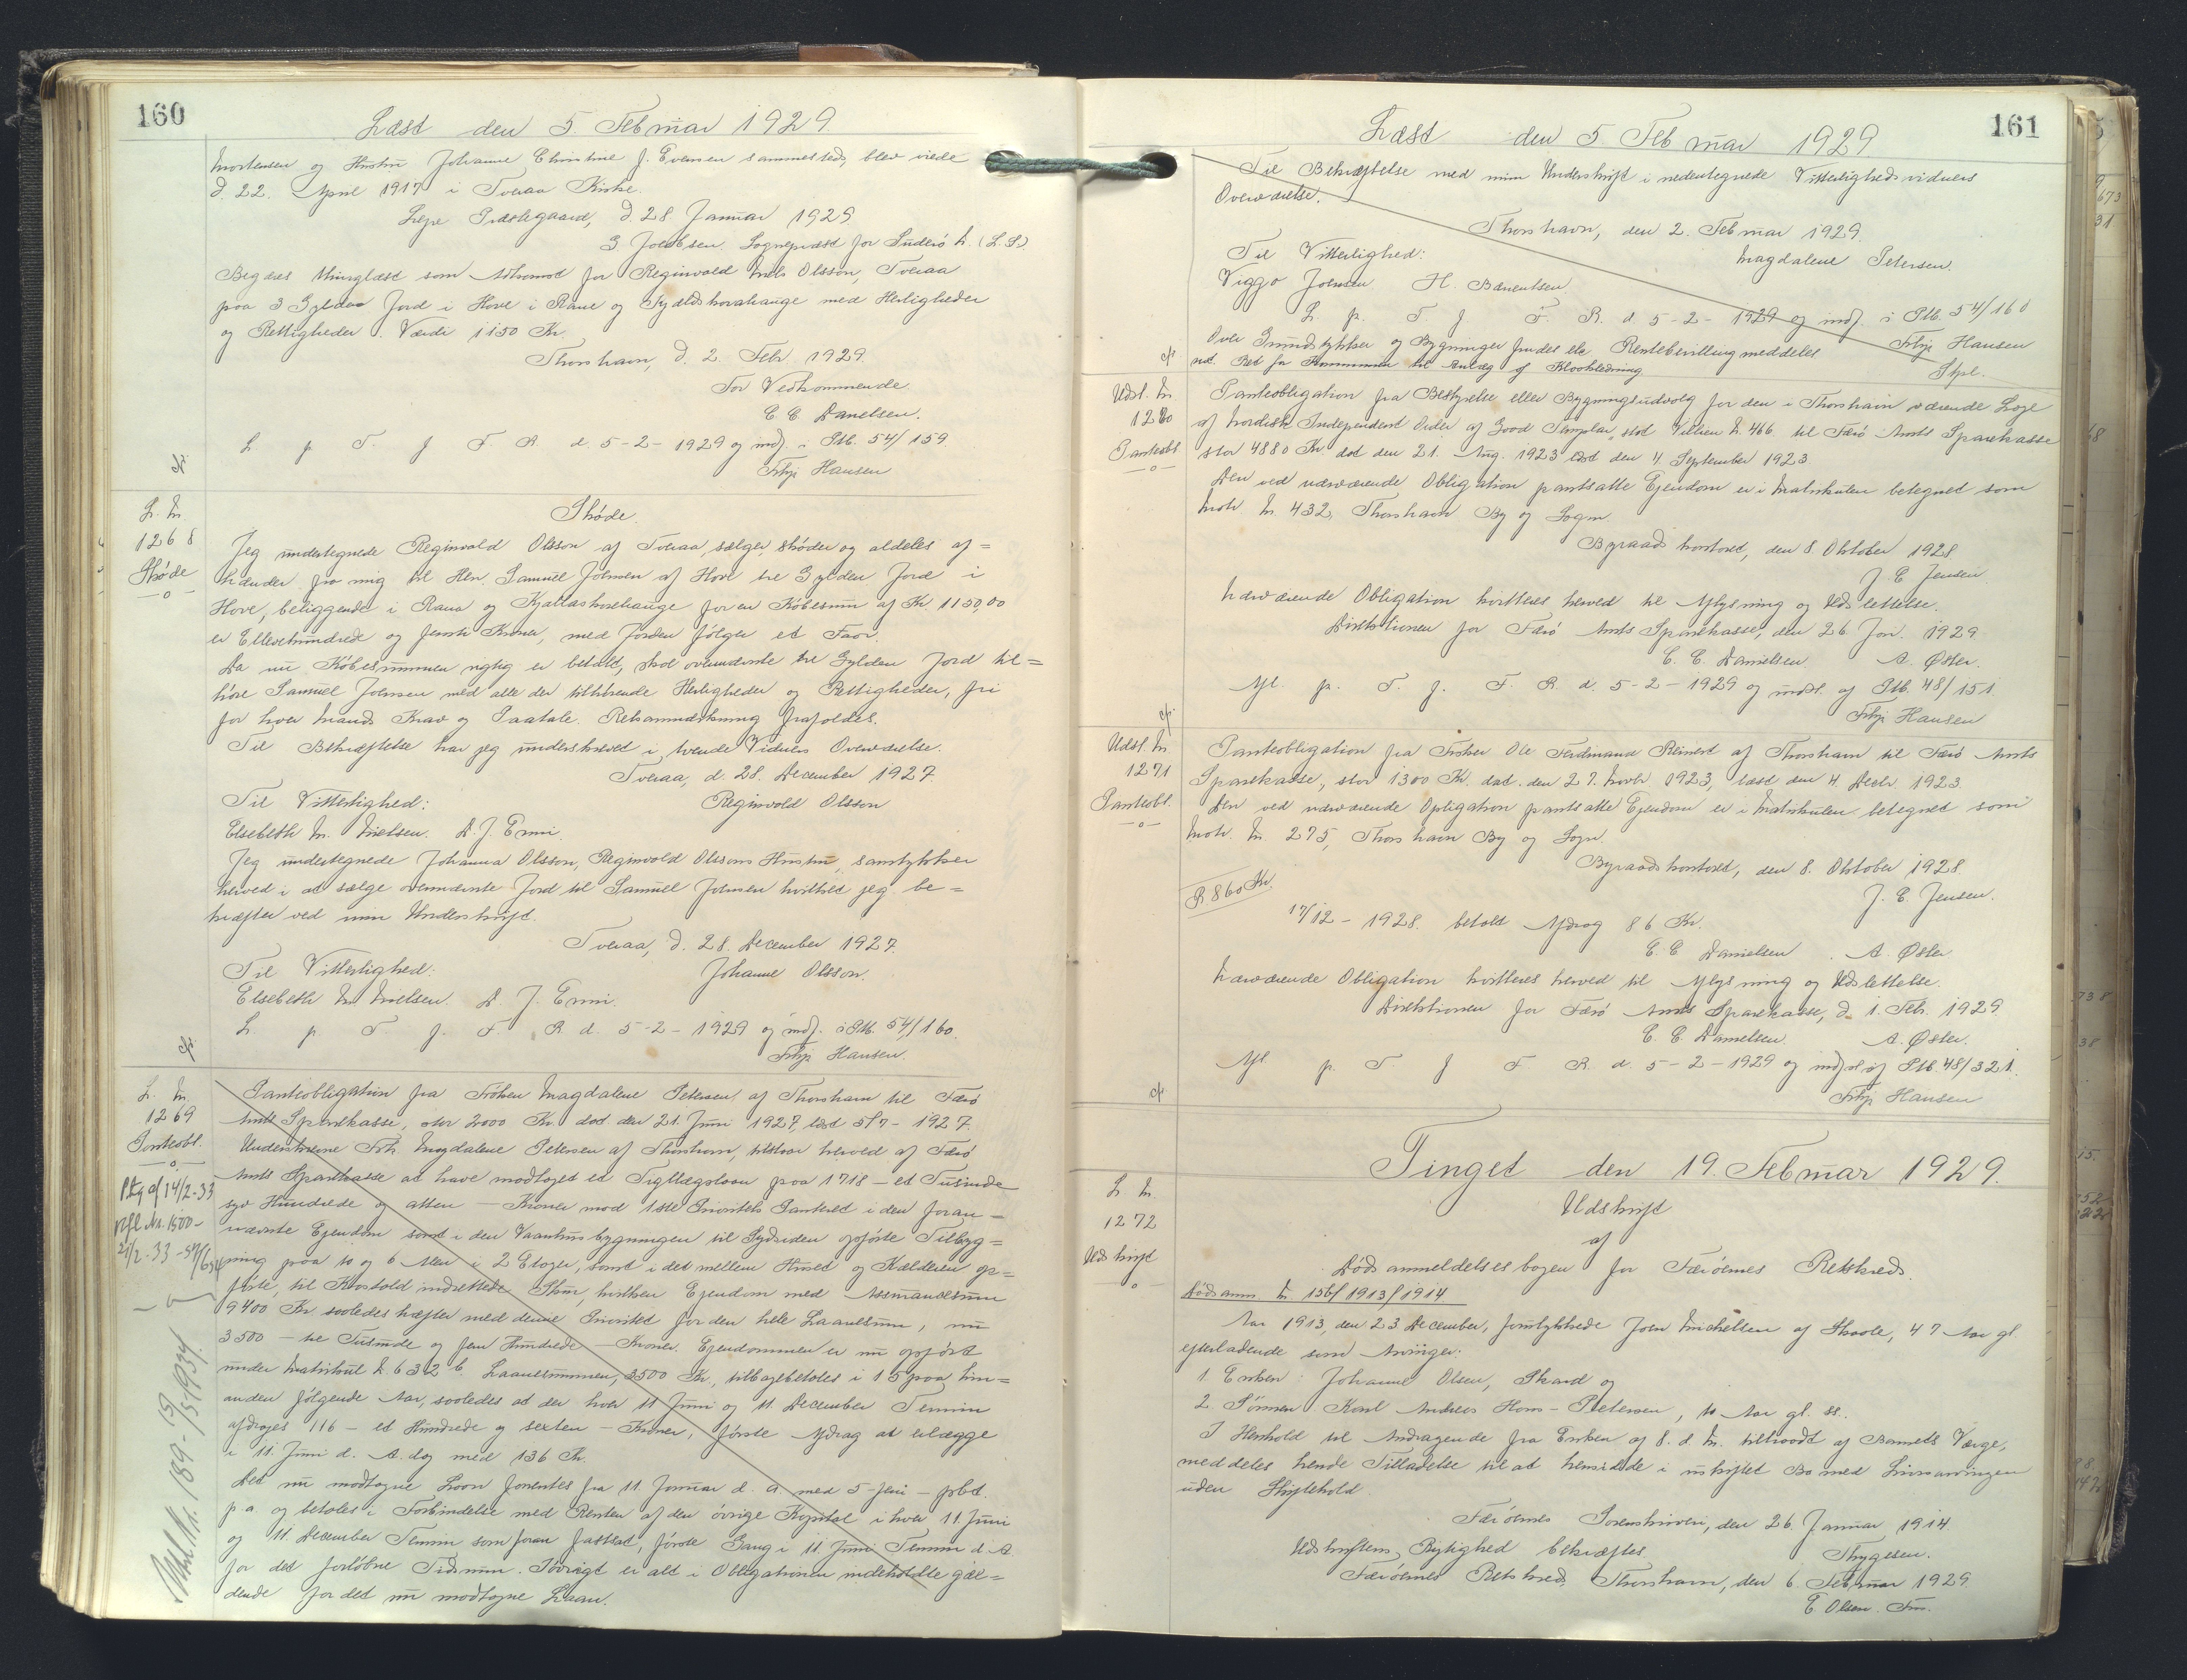 160
Læst den 5. Februar 1929.
Mortensen og Hustru Johanne Christine J. Evensen sammesteds, blev viede
d. 22. April 1917 i Tveraa Kirke.
Præstegaard, d. 28. Januar 1929
J Jacobsen. Sognepræst for Suderø (L.S.)
Begæres thinglæst som Adkomst for Reginvald Niels Olsson, Tveraa
paa 3 Gylden Jord i Hove i Rane og med Herligheder
og Rettigheder. Værdi 1150 Kr.
Thorshavn, d. 2. Febr. 1929.
For Vedkommende
C. C. Danielsen.
L. p. T. f. F. R. d. 5-2-1929 og indf. i Ptb. 54/159.
Hansen
L. Nr.
1268
Skøde
Skøde.
Jeg undertegnede Reginvald Olsson af Tveraa, sælger, skøder og aldeles af=
hænder fra mig til Hr. Samuel Joensen af Hove tre Gylden Jord i
Hove, beliggende i Rana og for en Købesum af Kr. 1150,00
er Ellevehundrede og femti Kroner, med Jorden følger et Faar.
Da nu Købesummen rigtig er betalt, skal ovennævnte tre Gylden Jord til=
høre Samuel Joensen med alle der tilhørende Herligheder og Rettigheder, fri
for hver Mands Krav og Paatale. Retsanmærkning frafaldes.
Til Bekræftelse har jeg underskrevet i tvende Vidners Overværelse.
Tveraa, d. 28. December 1927.
Til Vitterlighed: Reginvald Olsson
Elsebeth M. Nielsen. D. J. Enni.
Jeg undertegnede Johanna Olsson, Reginvald Olssons Hustru, samtykker
herved i at sælge ovennævnte Jord til Samuel Joensen hvilket jeg be=
kræfter ved min Underskrift.
Tveraa, d. 28. December 1927.
Til Vitterlighed: Johanne Olsson.
Elsebeth M. Nielsen. D. J. Enni.
L. p. T. f. F. R. d. 5-2-1929 og indf. i Ptb. 54/160.
Hansen.
L. Nr.
1269
Panteobl.
Panteobligation fra Frøken Magdalene Petersen af Thorshavn til Færø
Amts Sparekasse, stor 2000 Kr. dat. den 21. Juni 1927, læst 5/7-1927.
Underskrevne Frk. Magdalene Petersen af Thorshavn, tilstaar herved af Færø
Amts Sparekasse at have modtaget et Tillægslaan paa 1718 – et Tusinde
syv Hundrede og atten – Kroner mod 1ste Prioritets Panteret i den foran=
nævnte Ejendom samt i den Vaanhusbygningen til Sydsiden opførte Tilbyg=
ning paa 10 og 6 Alen i 2 Etager, samt i det mellem Huset og Kælderen op=
førte, til indrettede Skur, hvilken Ejendom med Assurancesum
9400 Kr. saaledes hæfter med denne Prioritet for den hele Laanesum, nu
3500 – tre Tusinde og fem Hundrede – Kroner. Ejendommen er nu opført
under Matrikul Nr. 632 b. Laanesummen, 3500 Kr., tilbagebetales i 15 paa hin=
anden følgende Aar, saaledes at der hver 11 Juni og 11. December Termin
afdrages 116 – et Hundrede og sexten – Kroner, første Afdrag at erlægge
i 11. Juni d. A. dog med 136 Kr.
Det nu modtagne Laan forrentes fra 11. Januar d. A. med 5 – fem – pCt.
p. a. og betales i Forbindelse med Renten af den øvrige Kapital i hver 11. Juni
og 11. December Termin som foran fastsat, første Gang i 11. Juni Termin d. A.
for det forløbne Tidsrum. Iøvrigt er alt i Obligationen indeholdte gæl=
dende for det nu modtagne Laan.
161
Læst den 5 Februar 1929.
Til Bekræftelse med min Underskrift i nedentegnede Vitterlighedsvidners
Overværelse.
Thorshavn, den 2. Februar 1929.
Til Vitterlighed: Magdalene Petersen.
Viggo Joensen H. Bærentsen
L. p. T. f. F. R. d. 5-2-1929 og indf. i Ptb. 54/160
Hansen
Over Grundstykker og Bygninger findes
ret for Kommunen til Anlæg af Kloakledning.
Udsl. Nr.
1270
Panteobl
Panteobligation fra Bestyrelse eller Bygningsudvalg for den i Thorshavn værende Loge
af Nordisk Independent Order of Good Templar, Nr. 466 til Færø Amts Sparekasse
stor 4880 Kr. dat. den 21. Aug. 1923 læst den 4. September 1923.
Den ved nærværende Obligation pantsatte Ejendom er i Matrikulen betegnet som
Matr. Nr. 432, Thorshavn By og Sogn
Byraadskontoret, den 8. Oktober 1928
J. E Jensen
Nærværende Obligation kvitteres herved til Aflysning og Udslettelse.
Direktionen for Færø Amts Sparekasse, den 26. Jan. 1929
C. C. Danielsen. A. Øster.
Afl. p. T. f. F. R. d. 5-2-1929 og udsl. af Ptb. 48/151.
Hansen
Udsl. Nr
1271
Panteobl.
Panteobligation fra Fisker Ole Ferdinand Reinert af Thorshavn til Færø Amts
Sparekasse, stor 1300 Kr. dat. den 27. Novbr. 1923, læst den 4. Decbr. 1923.
Den ved nærværende Opligation pantsatte Ejendom er i Matrikulen betegnet som
Matr. Nr. 275, Thorshavn By og Sogn
Byraadskontoret, den 8. Oktober 1928.
J. E. Jensen.
R 860 Kr.
17/12-1928. betalt Afdrag 86 Kr.
C. C. Danielsen. A. Øster
Nærværende Obligation kvitteres herved til Aflysning og Udslettelse.
Direktionen for Færø Amts Sparekasse, d. 1. Feb. 1929.
C. C. Danielsen. A. Øster.
Afl. p. T. f. F. R. d. 5-2-1929 og udsl af Ptb. 48/321.
Hansen
Tinget den 19. Februar 1929.
L. Nr.
1272
Udskrift
Udskrift
af
Dødsanmeldelsesbogen for Færøernes Retskreds.
Dødsanm. Nr. 156/1913/1914
Aar 1913, den 23 December, Joen Michelsen af Skaale, 47 Aar gl.
efterladende som Arvinger:
1. Enken: Johanne Olsen, Skaard og
2. Sønnen Karl Andreas Hans-Petersen, 10 Aar gl.
I Henhold til Andragende fra Enken af 8. d. M. tiltraadt af Barnets Værge,
meddeles hende Tilladelse til at hensidde i uskiftet Bo med Livsarvingen
uden Skiftehold.
Færøernes Sorenskriveri, den 26. Januar 1914.
Udskriftens Rigtighed bekræftes. Thygesen.
Færøernes Retskreds. Thorshavn, den 6. Februar 1929.
E. Olsen.